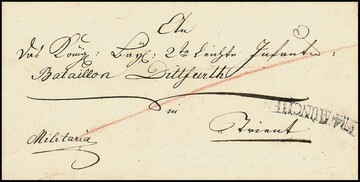 An
das Königl: Bayl: 2te leichte Infant:
Bataillon Dittfurth
in
Trient
Militaria
MÜNCHEN